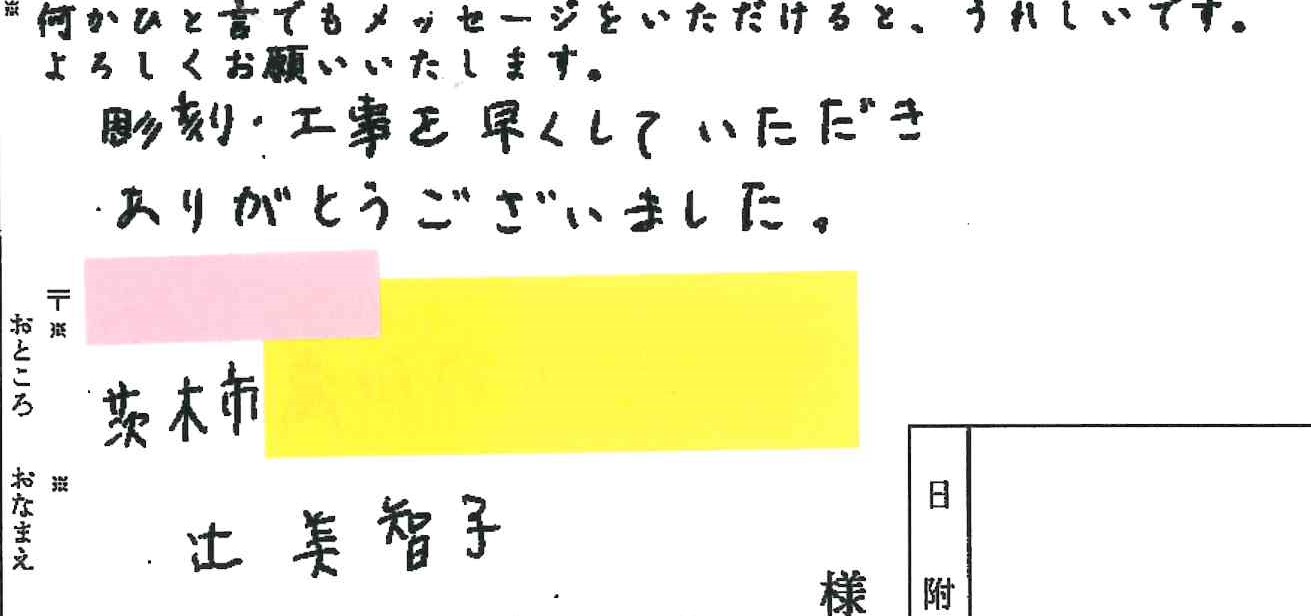 ※何かひと言でもメッセージをいただけると、うれしいです。
よろしくお願いいたします。
彫刻・工事を早くしていただき
ありがとうございました。
〒※
おところ
茨木市
おなまえ※
辻 美智子
様
日附